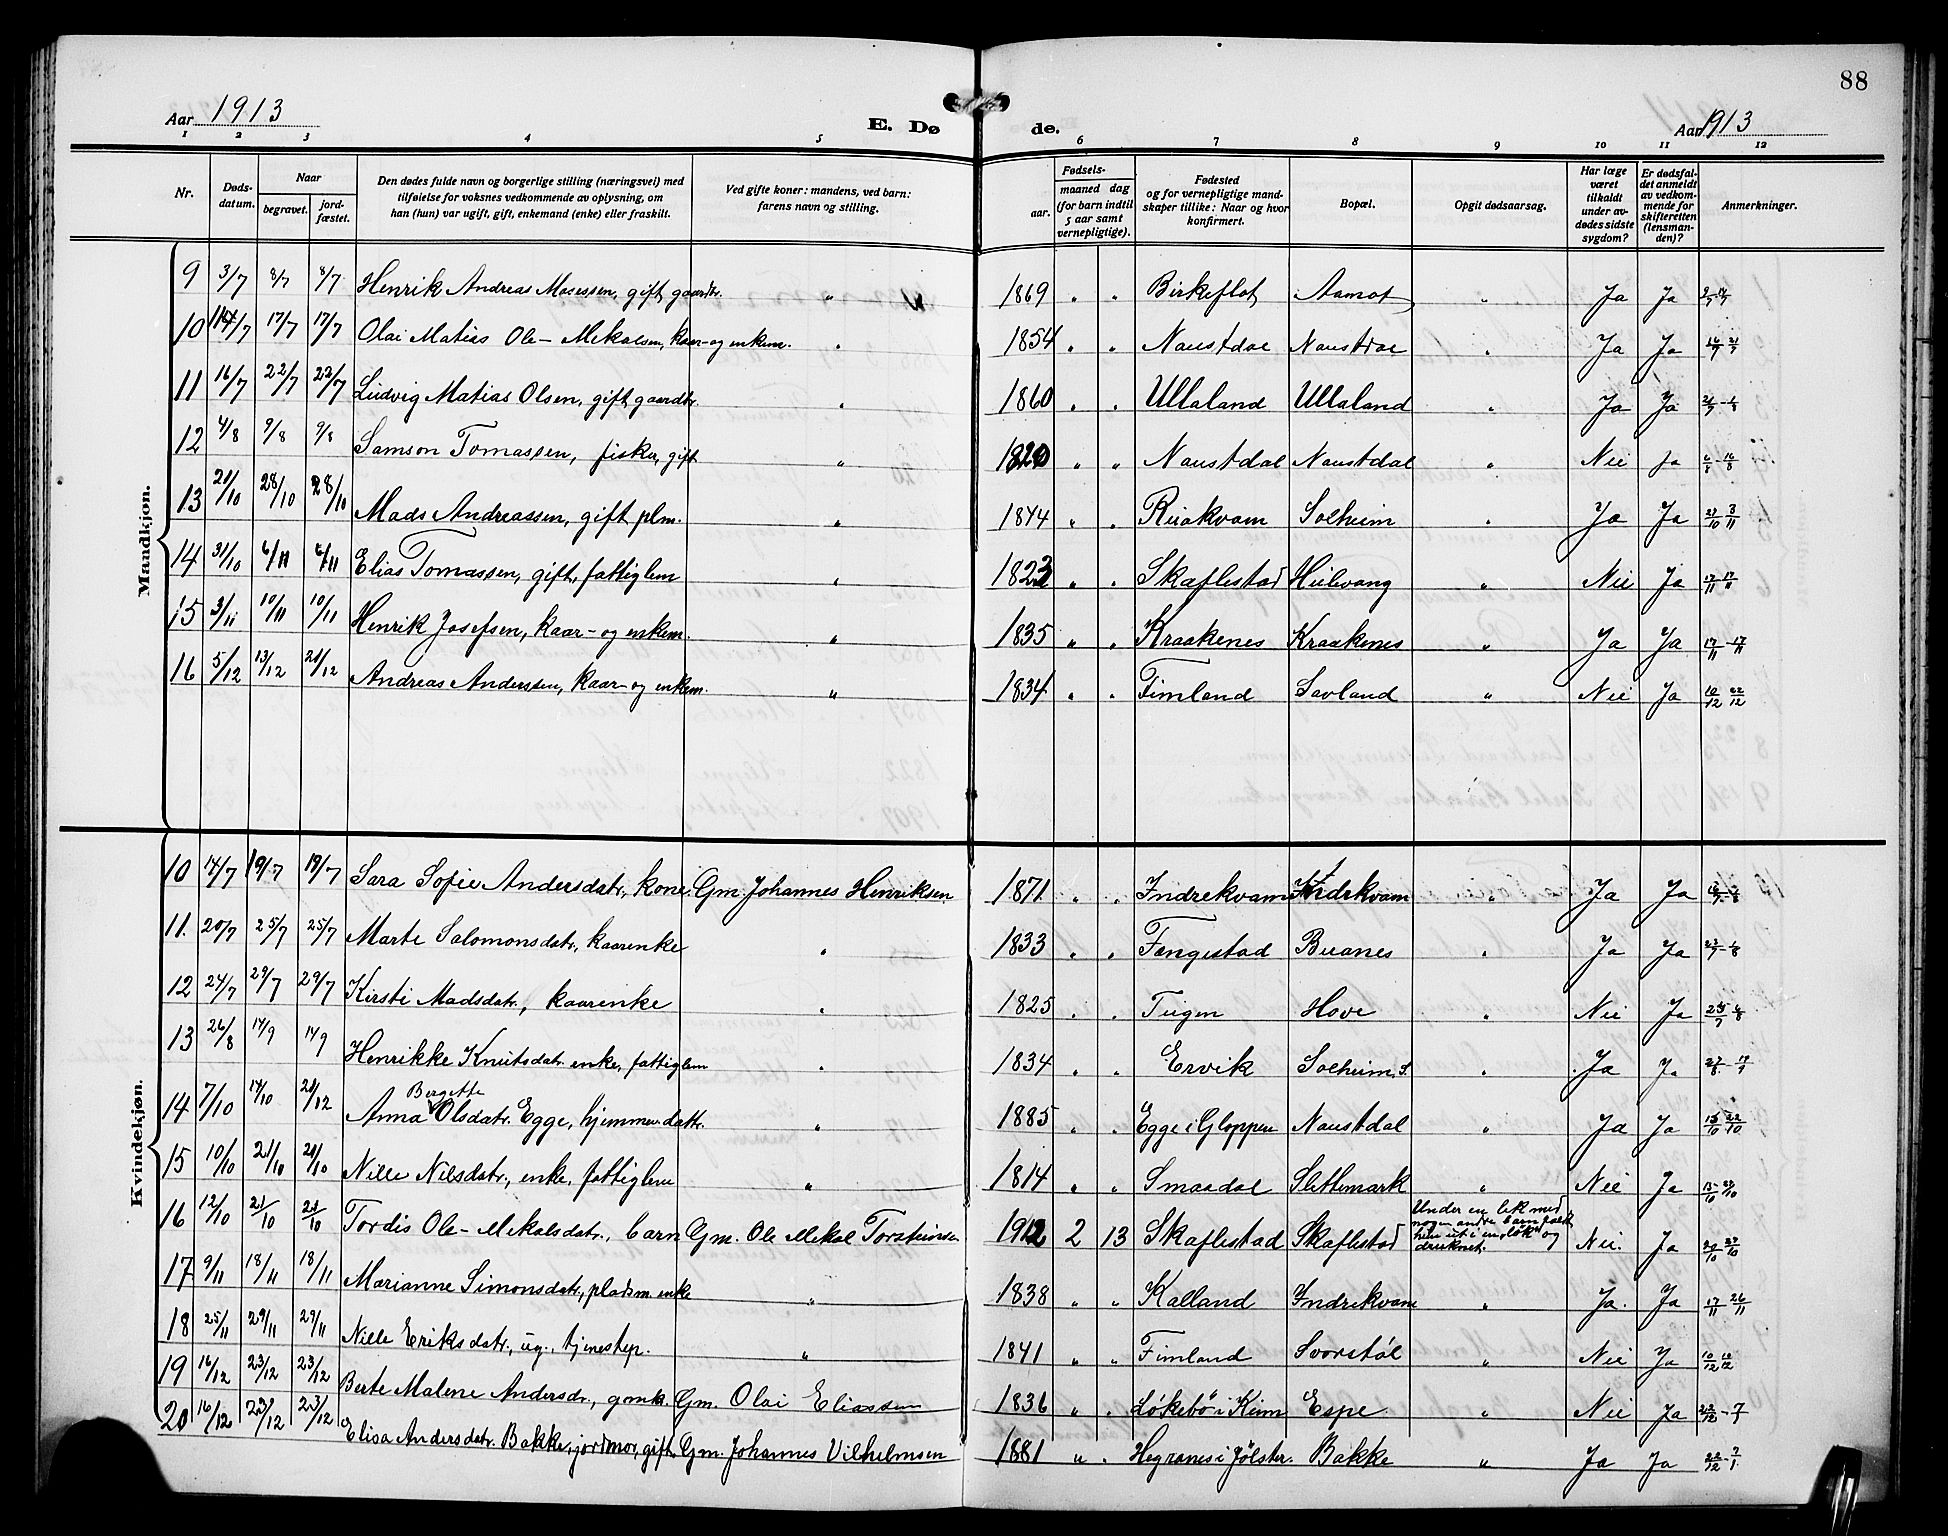 88
Aar 1913
E. Dø
de.
Aar 1913
1 2 3 4 5 6 7 8 9 10 11 12
Nr.
Døds-
datum.
Naar
begravet.
jord-
fæstet.
Den dødes fulde navn og borgerlige stilling (næringsvei) med
tilføielse for voksnes vedkommende av oplysning, om
han (hun) var ugift, gift, enkemand (enke) eller fraskilt.
Ved gifte koner: mandens, ved barn:
farens navn og stilling.
aar.
Fødsels-
maaned dag
(for barn indtil
5 aar samt
vernepligtige).
Fødested
og for vernepligtige mand-
skaper tillike: Naar og hvor
konfirmert.
Bopæl.
Opgit dødsaarsag.
Har læge
været
tilkaldt
under av-
dødes sidste
sygdom?
Er dødsfal-
det anmeldt
av vedkom-
mende for
skifteretten
(lensman-
den)?
Anmerkninger.
Maandkjøn.
9 3/7 8/7 8/7 Henrik Andreas Mosessen, gift gaardbr. " 1869 " " Birkeflot Aamot " Ja Ja
10 14/7 17/7 17/7 Olai Matias Ole-Mekalsen, kaar- og enkem. " 1854 " " Naustdal Naustdal " Ja Ja 16/7 21/7
11 16/7 22/7 22/7 Ludvig Matias Olsen, gift gaardbr. " 1860 " " Ullaland Ullaland " Ja Ja 21/7 - 1/8
12 4/8 9/8 9/8 Samson Tomassen, fisker, gift " 1820 " " Naustdal Naustdal " Nei Ja 6/8 - 16/8
13 21/10 28/10 28/10 Mads Andreassen, gift plm. " 1844 " " Ruakvam Solheim " Ja Ja 27/10 3/11
14 31/10 6/11 6/11 Elias Tomassen, gift, fattiglem " 1823 " " Skaflestad Hulvang " Nei Ja 17/11 17/11
15 3/11 10/11 10/11 Henrik Josefsen, kaar- og enkem. " 1835 " " Kraakenes Kraakenes " Ja Ja 17/11 - 17/11
16 5/12 13/12 21/12 Andreas Anderssen, kaar- og enkem. " 1834 " " Fimland Savland " Nei Ja 10/12 22/12
Kvindekjøn.
10 14/7 19/7 19/7 Sara Sofie Andersdatr., kone. Gm. Johannes Henriksen 1871 " " Indrekvam Indrekvam " Ja Ja
11. 20/7 25/7 25/7 Marte Salomonsdatr., kaarenke " 1833 " " Fængestad Buanes " Ja Ja 23/7 - 1/8
12 24/7 29/7 29/7 Kirsti Madsdatr., kaarenke " 1825 " " Tugen Hove " Nei Ja 25/7 - 6/8
13 26/8 14/9 14/9 Henrikke Knutsdatr. enke, fattiglem " 1834 " " Ervik Solheim, S. " Ja Ja
Bergitte
14 7/10 14/10 21/12 Anna Olsdatr. Egge, hjemmev. dattr. " 1885 " " Egge i Gloppen Naustdal " Ja Ja 13/10 22/10
15 10/10 21/10 21/10 Nille Nilsdatr., enke, fattiglem " 1814 " " Smaadal Slettemark " Nei Ja
16 12/10 21/10 21/10 Tordis Ole-Mekalsdatr., barn Gm. Ole Mekal Torsteinsen 1912 2 13 Skaflestad Skaflestad Under en lek med
nogen andre barn faldt
hun ut i en løk og
druknet. Nei. Ja
17 9/11 18/11 18/11 Marianne Simonsdatr., pladsm. enke " 1838 " " Kalland Indrekvam " Ja. Ja 17/11 26/11
18 25/11 29/11 29/11 Nille Eriksdatr., ug., tjenestep. " 1841 " " Fimland Svorstøl " Nei Ja 10/12 10/12
19 16/12 23/12 23/12 Berte Malene Andersdr., gmk. Gm. Olai Eliassen 1836 " " Løkebø i Kinn Espe " Nei Ja
20 16/12 23/12 23/12 Elisa Andersdatr. Bakke, jordmor, gift Gm. Johannes Vilhelmsen 1881 " " Hegranes i Jølster. Bakke " Ja Ja 22/12 - 7/1